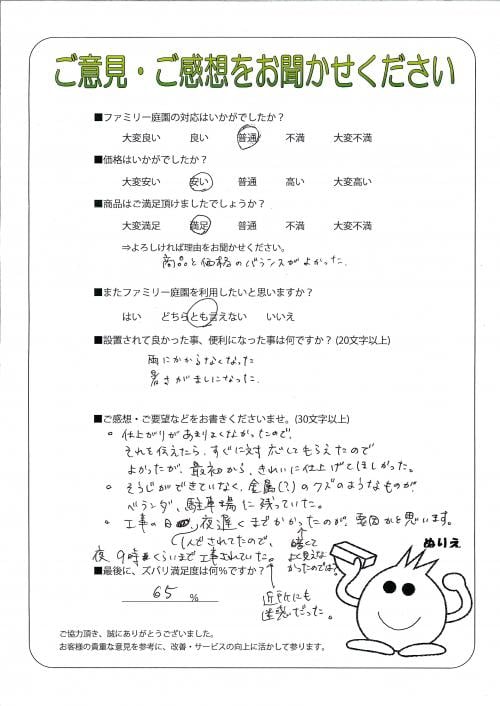 ご意見・ご感想をお聞かせください
■ファミリー庭園の対応はいかがでしたか？
大変良い 良い 普通 不満 大変不満
■価格はいかがでしたか？
大変安い 安い 普通 高い 大変高い
■商品はご満足頂けましたでしょうか？
大変満足 満足 普通 不満 大変不満
⇒よろしければ理由をお聞かせください。
商品と価格のバランスがよかった.
■またファミリー庭園を利用したいと思いますか？
はい どちらとも言えない いいえ
■設置されて良かった事、便利になった事は何ですか？(20文字以上)
雨にかからなくなった
暑さがましになった.
■ご感想・ご要望などをお書きくださいませ。(30文字以上)
。仕上がりがあまりよくなかったので、
それを伝えたら、すぐに対応してもらえたので
よかったが、最初から、きれいに仕上げてほしかった。
。そうじができていなく、金属(?)のクズのようなものが
ベランダ、駐車場に残っていた。
。工事の日、夜遅くまでかかったのが、要因かと思います。
1人でされてたので、
↑暗くて
よく見えな
かったのでは?
夜9時くらいまで工事されていた。
↑
近所にも
迷惑だった。
ぬりえ
■最後に、ズバリ満足度は何％ですか？
65 %
ご協力頂き、誠にありがとうございました。
お客様の貴重な意見を参考に、改善・サービスの向上に活かして参ります。